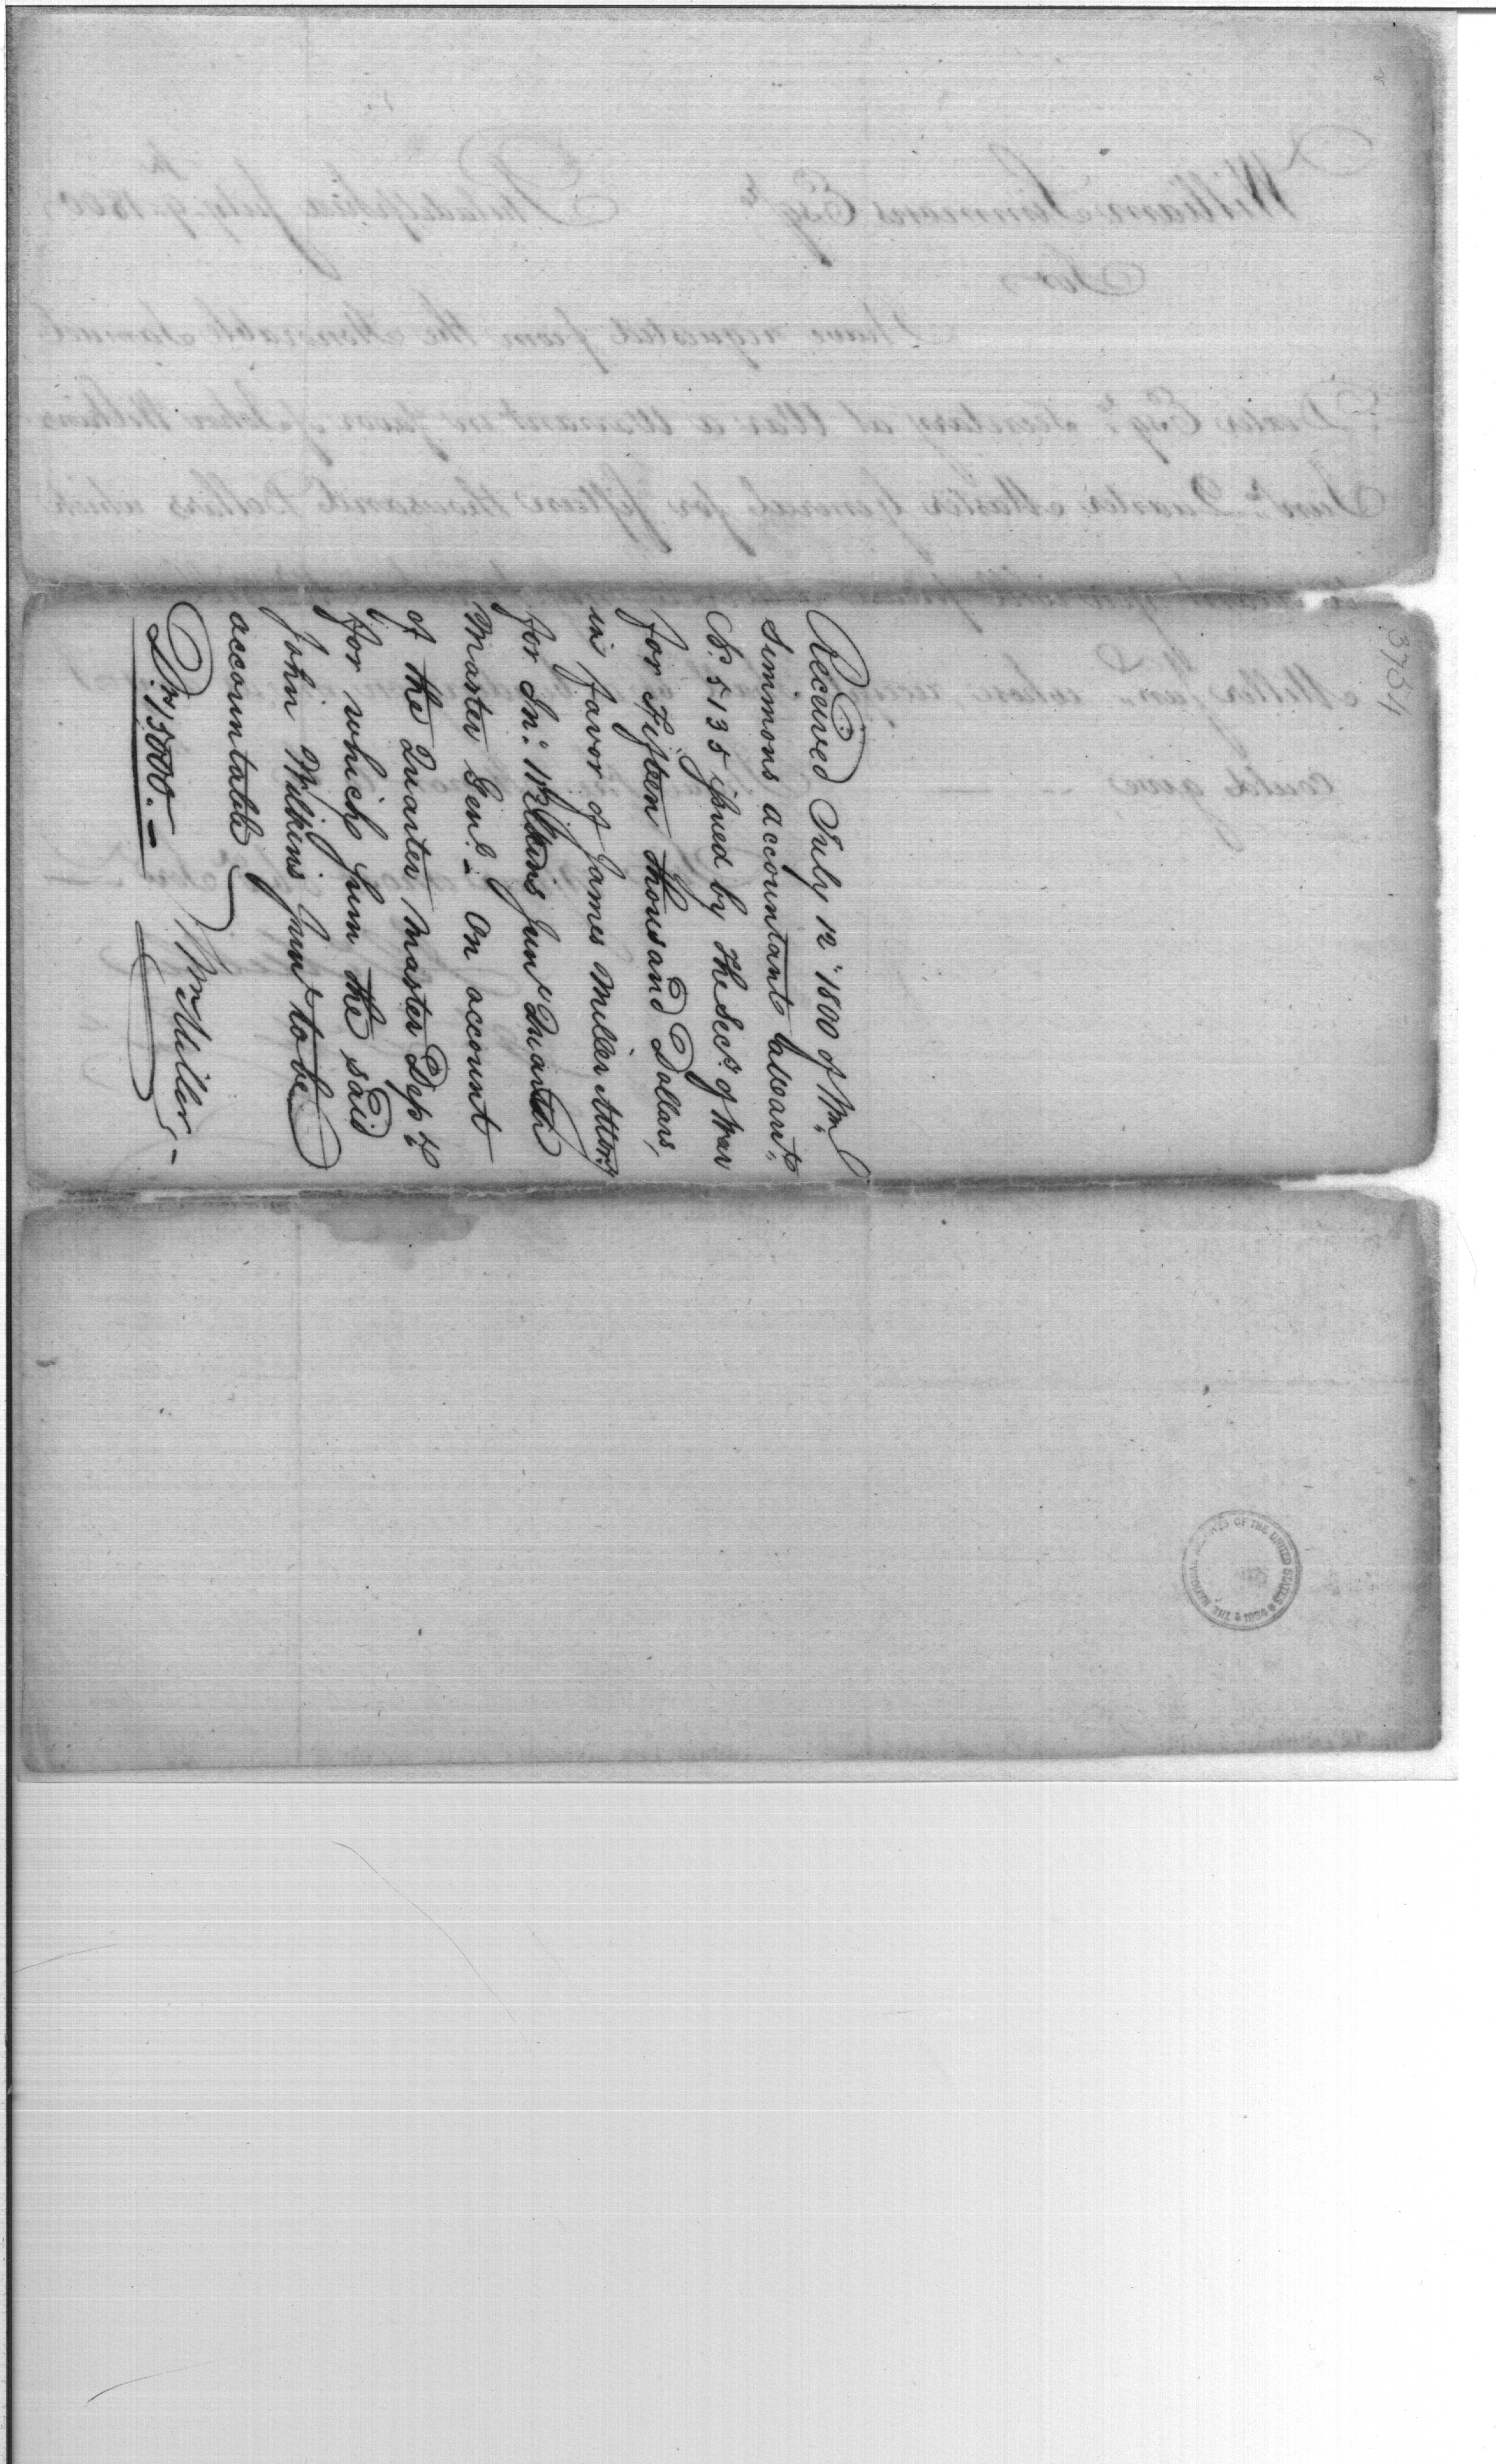 Received July 12th 1800 of Wm
Simmons accountant Warrant
No. 5135 issued by the Secy of War
for Fifteen thousand Dollars,
in favor of James Miller Attorny
for Jno. Wilkins Junr Quarter
Master Genl. - On account
of the Quarter Master Dept.
for which sum the said
John Wilkins Junr to be
accountable
Drs. 15000. -
Jas Miller, -
3754
William Simmons Esqr Philadelphia July 9th 1800
Sir
I have requested from the Honorable Samuel
Dexter Esqr. Secretary at War a Warrant in favor of John Wilkins
Junr. Quarter Master General for fifteen thousand Dollars which
Miller Junr. whose receipt
could give
THE NATIONAL ARCHIVES OF THE UNITED STATES 1934